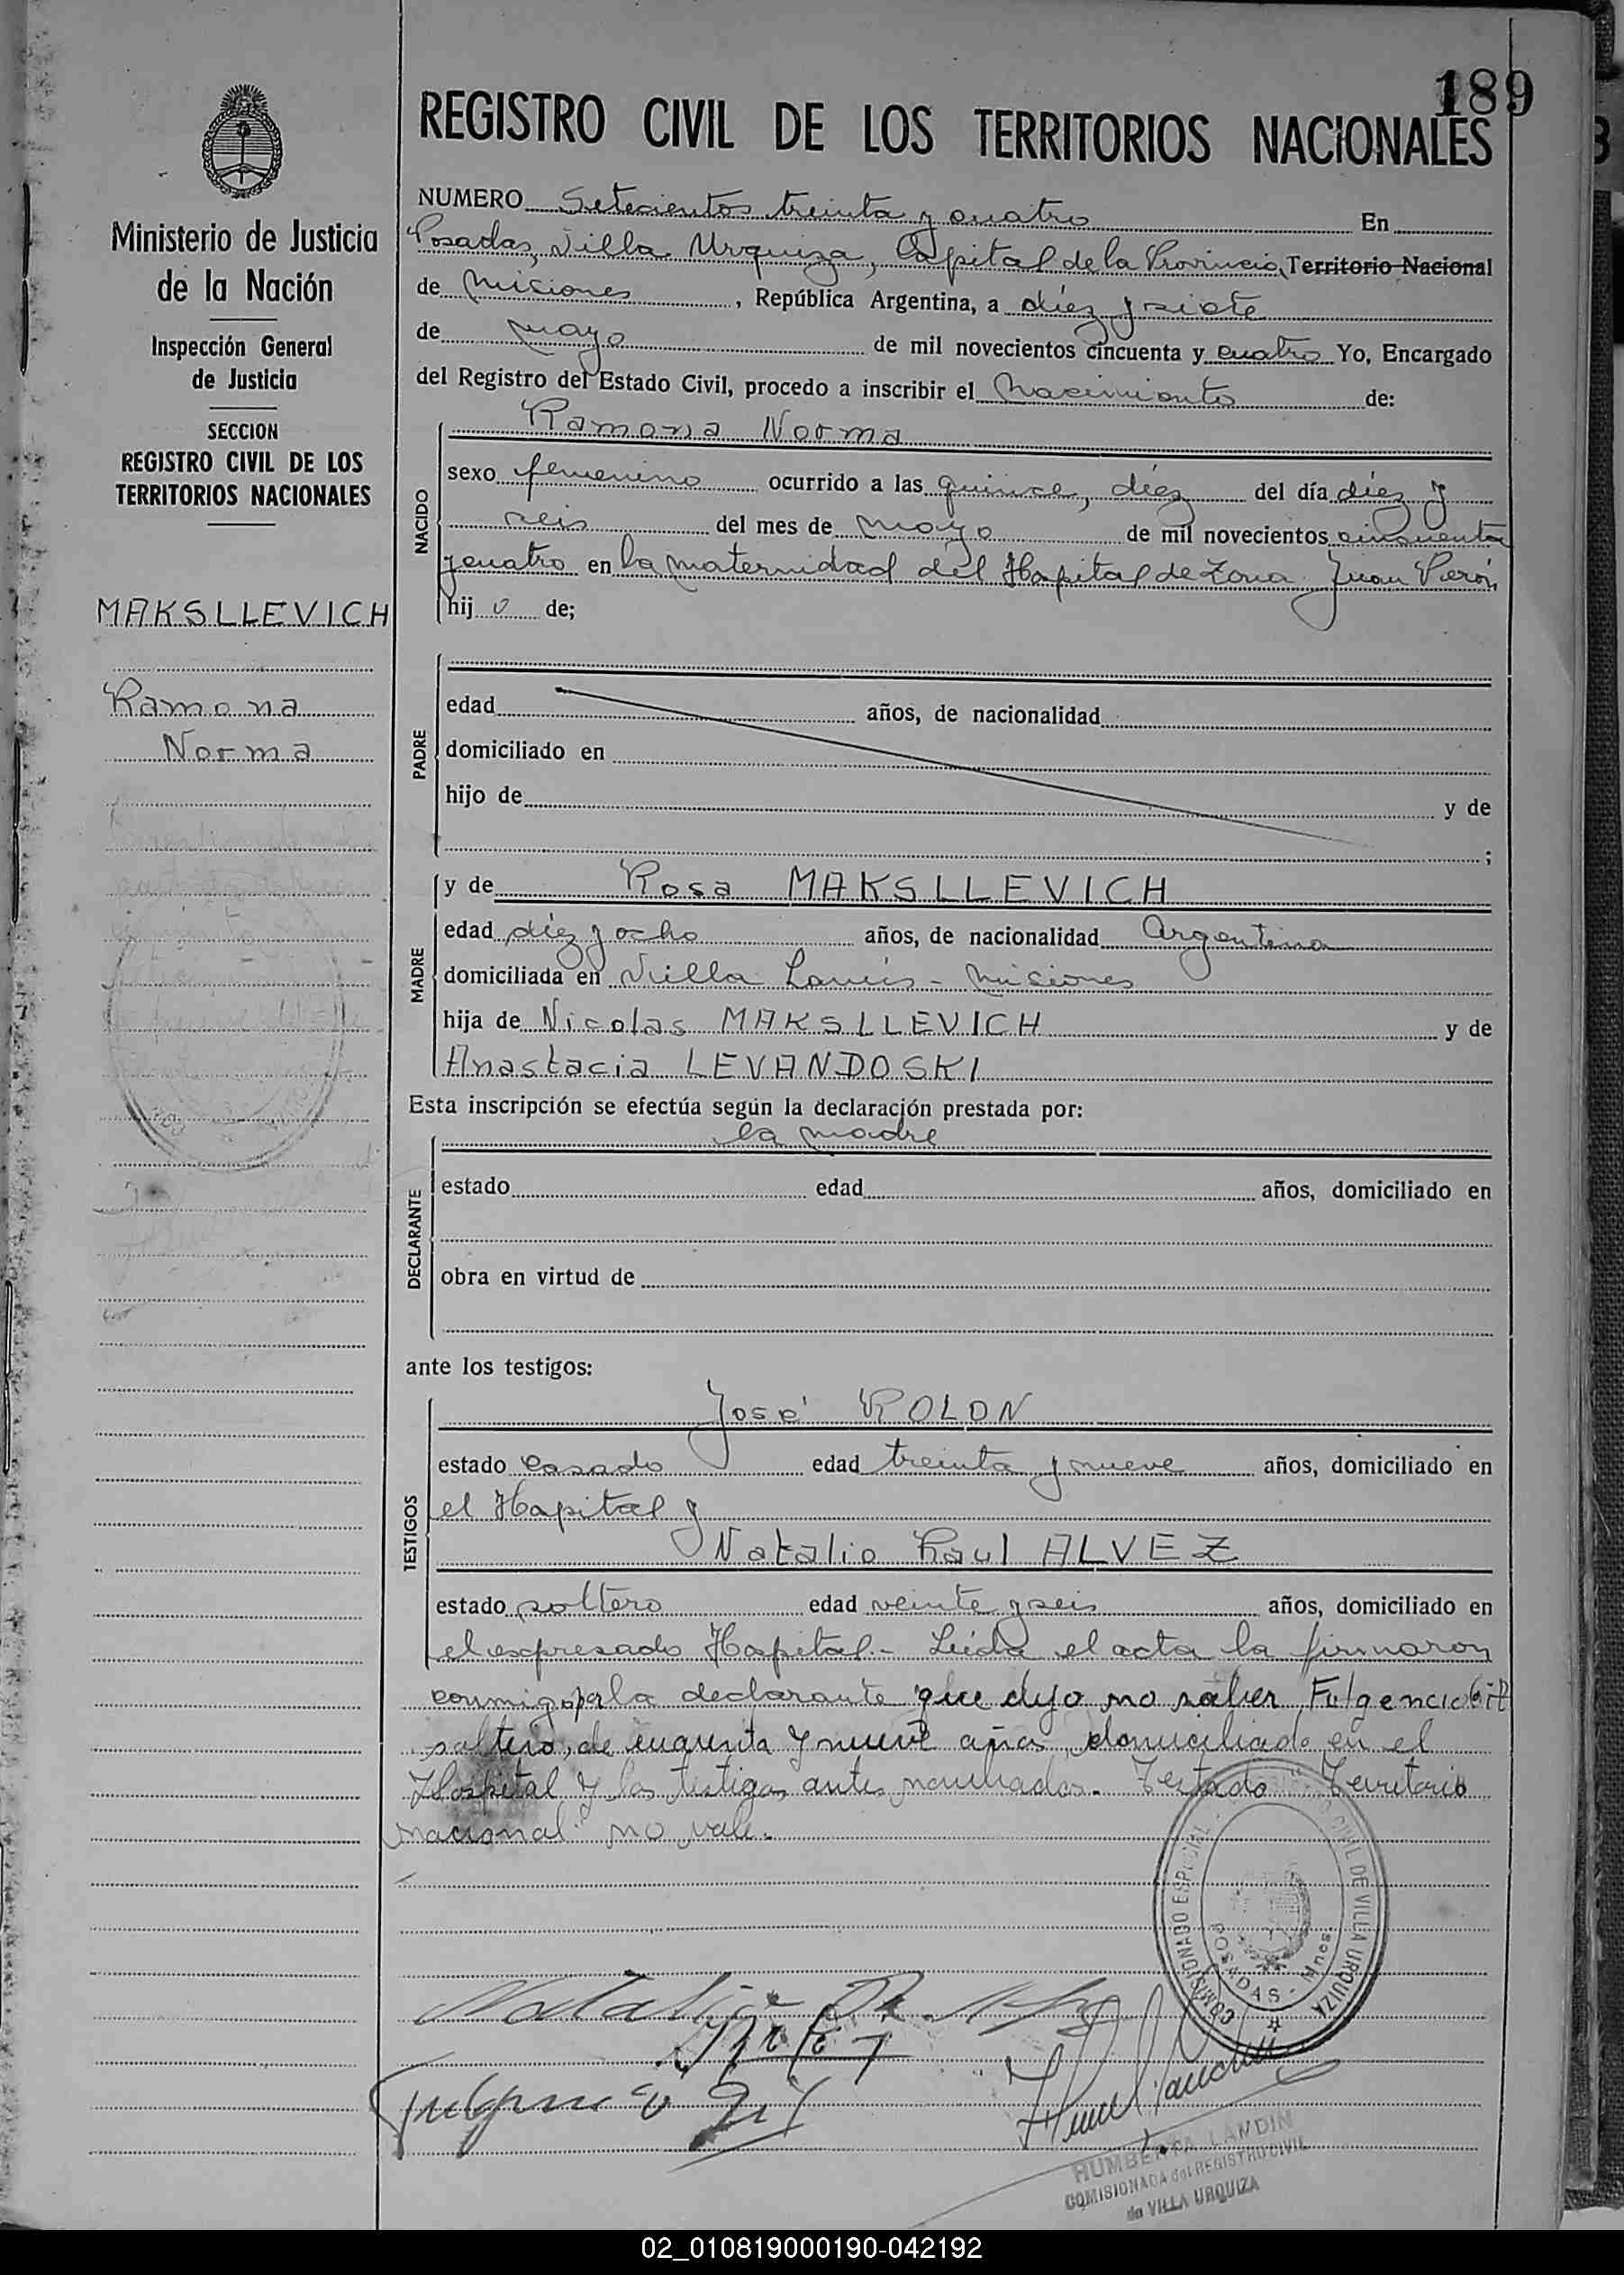 189
REGISTRO CIVIL DE LOS TERRITORIOS NACIONALES
Ministerio de Justicia
de la Nación
Inspección General
de Justicia
SECCION
REGISTRO CIVIL DE LOS
TERRITORIOS NACIONALES
MAKSLLEVICH
Ramona
Norma
NUMERO Setecientos treinta y cuatro En
Posadas, Villa Urquiza, Capital de la Provincia, Territorio Nacional
de Misiones, República Argentina, a diez y siete
de mayo de mil novecientos cincuenta y cuatro Yo, Encargado
del Registro del Estado Civil, procedo a inscribir el Nacimiento de:
NACIDO
Ramona Norma
sexo femenino ocurrido a las quince, diez del día diez y
seis del mes de mayo de mil novecientos cincuenta
y cuatro en la maternidad del Hospital de Zona Juan Perón
hij o de;
PADRE
edad años, de nacionalidad
domiciliado en
hijo de y de
;
MADRE
y de Rosa MAKSLLEVICH
edad diez y ocho años, de nacionalidad Argentina
domiciliada en Villa Lanús - Misiones
hija de Nicolas MAKSLLEVICH y de
Anastacia LEVANDOSKI
Esta inscripción se efectúa según la declaración prestada por:
DECLARANTE
la madre
estado edad años, domiciliado en
obra en virtud de
ante los testigos:
TESTIGOS
José ROLON
estado casado edad treinta y nueve años, domiciliado en
el Hospital y
Natalio Raul ALVEZ
estado soltero edad veinte y seis años, domiciliado en
el expresado Hospital.- Leída el acta la firmaron
conmigo, por la declarante que dijo no saber Fulgencio Gil
soltero, de cuarenta y nueve años domiciliado en el
Hospital y los testigos antes nombrados.- Testado "Territorio
nacional" no vale.-
COMISIONADO ESPECIAL CIVIL DE VILLA URQUIZA
POSADAS - Mnes.
Natalio R. Alvez
Fulgencio Gil
HUMBERTA LANDIN
COMISIONADA del REGISTRO CIVIL
de VILLA URQUIZA
02_010819000190-042192